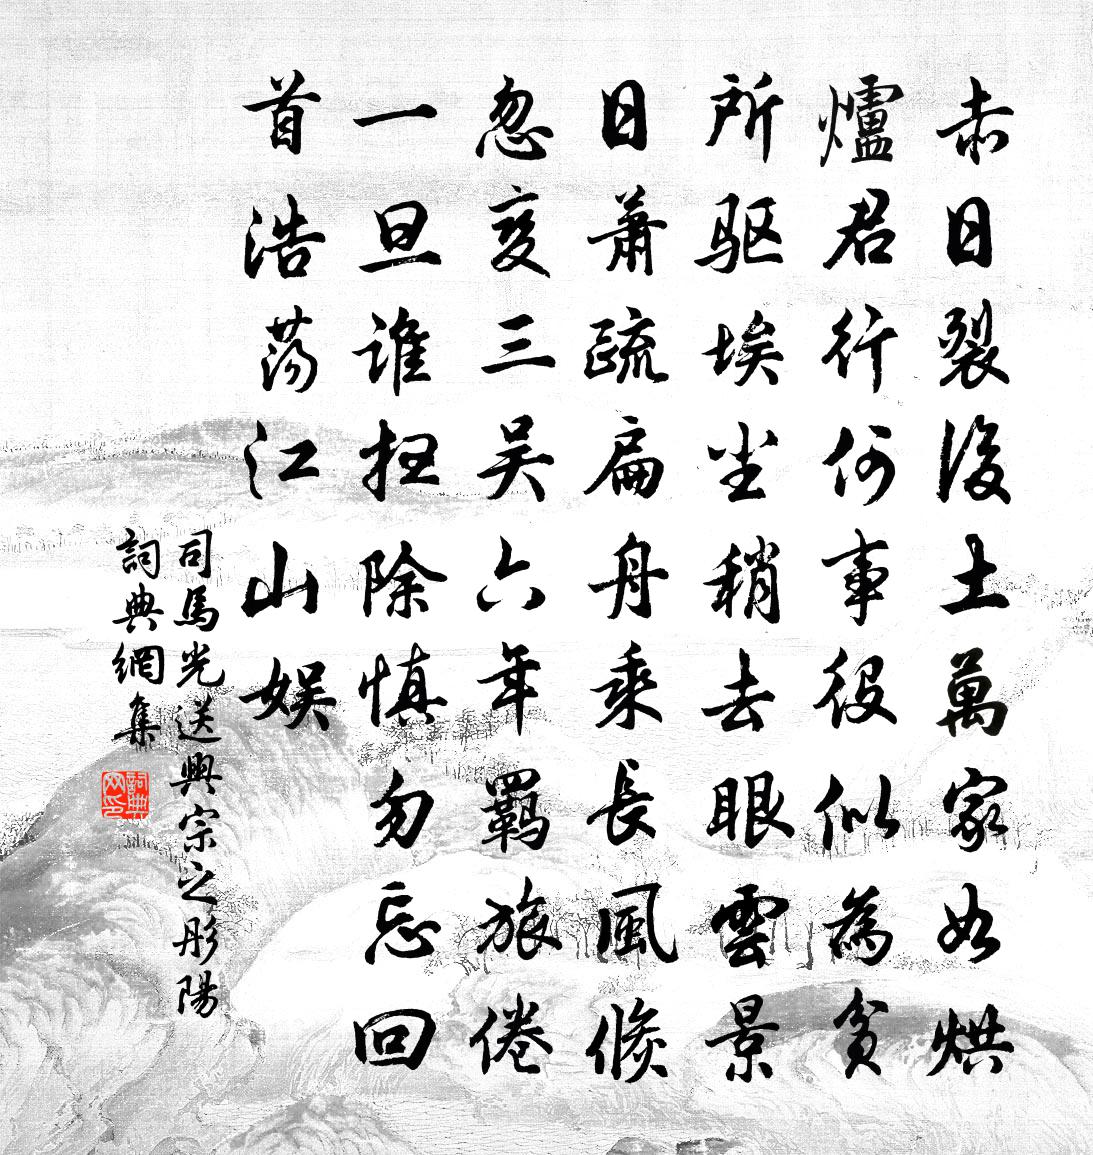 赤日裂後土萬家如烘
爐君行何事役似為貧
所驱埃尘稍去眼雲景
日蕭疏扁舟乘長風倏
忽变三吴六年羈旅倦
一旦誰拒除慎勿忘回
首浩荡江山娱
司馬光送興宗之彤陽
詞典網集
詞典
网印